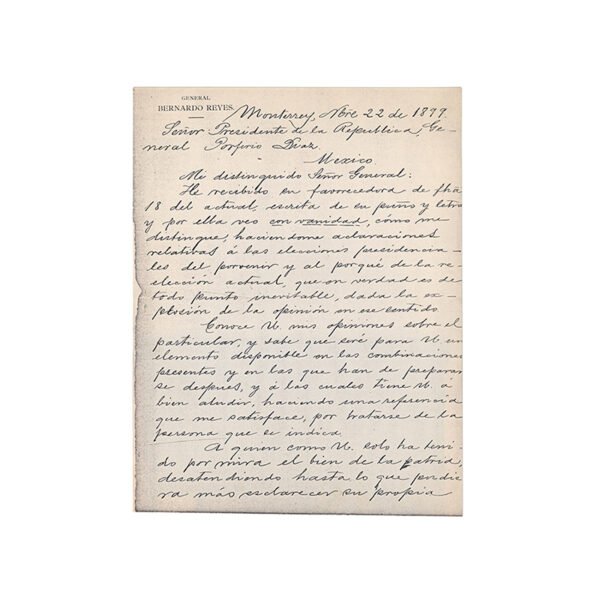 GENERAL
BERNARDO REYES.
Monterrey, Nbre 22 de 1899.
Señor Presidente de la Republica, Ge-
neral Porfirio Diaz.
Mexico
Mi distinguido Señor General:
He recibido su favorecedora de fha
18 del actual, escrita de su puño y letra
y por ella veo con vanidad, cómo me
distingue, haciendome aclaraciones
relativas á las elecciones presidencia-
les del porvenir y al porqué de la re-
elección actual, que en verdad es de
todo punto inevitable, dada la ex-
plosión de la opinión en ese sentido
Conoce U. mis opiniones sobre el
particular, y sabe que seré para U. un
elemento disponible en las combinaciones
presentes y en las que han de preparar
se despues, y á las cuales tiene U. á
bien aludir, haciendo una referencia
que me satisface, por tratarse de la
persona que se indica
A quien como U. solo ha teni-
do por mira el bien de la patria,
desatendiendo hasta lo que pudie
ra más esclarecer su propia